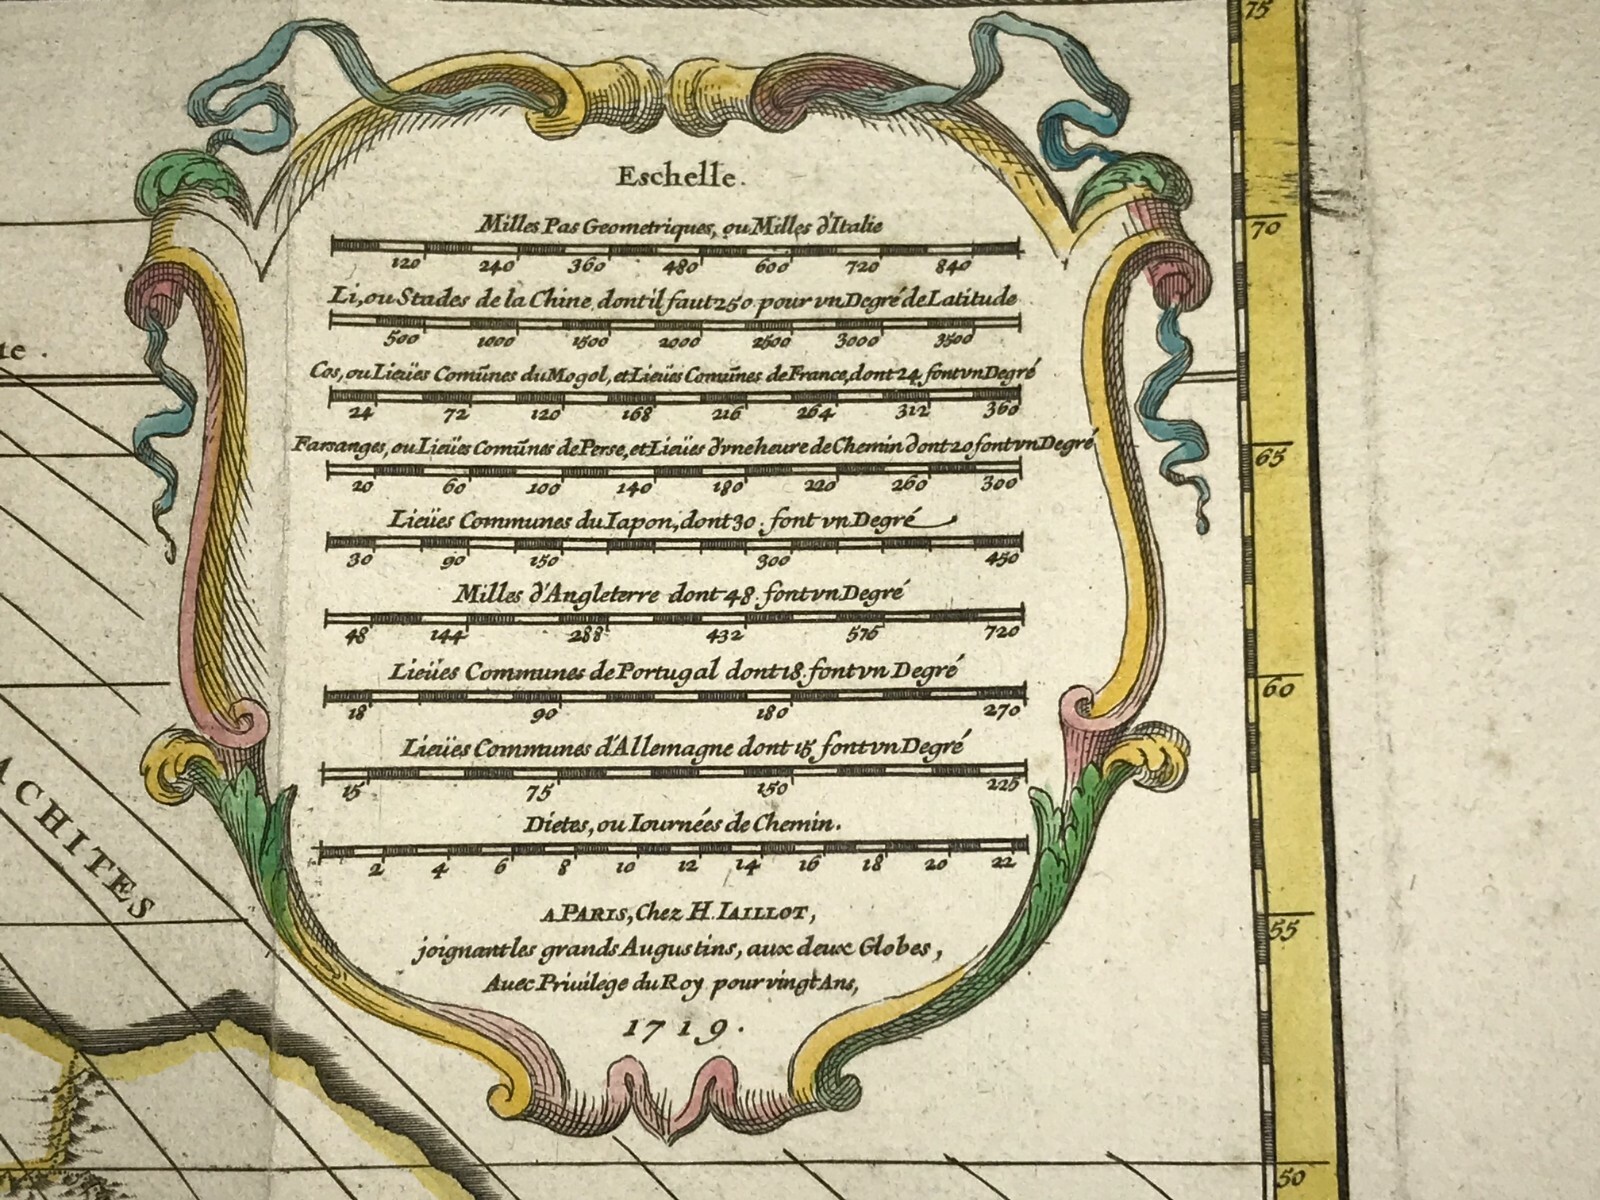 75
Eschelle.
Milles Pas Geometriques, ou Milles d'Italie
120 240 360 480 600 720 840
70
Li, ou Stades de la Chine dont il faut 250 pour vn Degré de Latitude
500 1000 1500 2000 2500 3000 3500
Cos, ou Lieües Comūnes du Mogol, et Lieües Comūnes de France, dont 24 font vn Degré
24 72 120 168 216 264 312 360
Farsanges, ou Lieües Comūnes de Perse, et Lieües d'vne heure de Chemin dont 20 font vn Degré
65
20 60 100 140 180 220 260 300
Lieües Communes du Iapon, dont 30. font vn Degré
30 90 150 300 450
Milles d'Angleterre dont 48. font vn Degré
48 144 288 432 576 720
Lieües Communes de Portugal dont 18. font vn Degré
60
18 90 180 270
Lieües Communes d'Allemagne dont 15 font vn Degré
15 75 150 225
ACHITES
Dietes, ou Iournées de Chemin.
2 4 6 8 10 12 14 16 18 20 22
A PARIS, Chez H. IAILLOT,
55
joignant les grands Augustins, aux deux Globes,
Auec Priuilege du Roy pour vingt Ans,
1719.
50